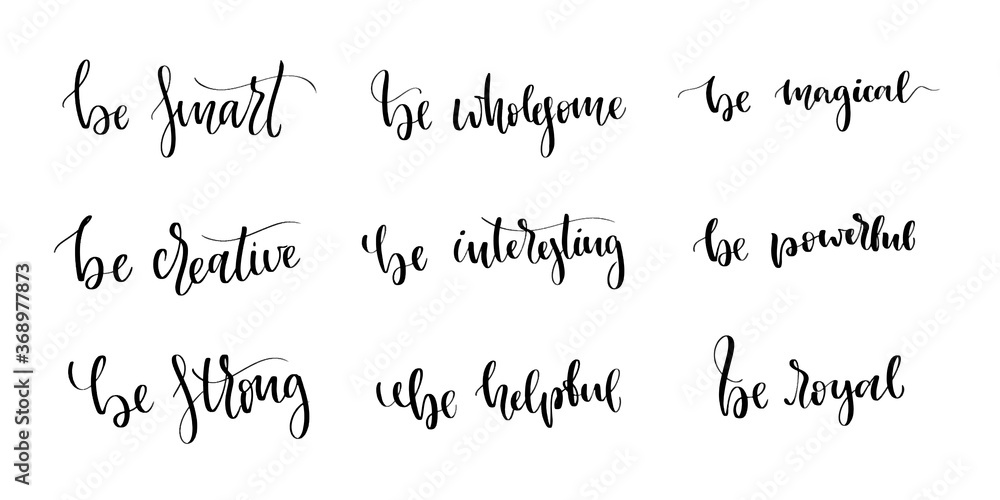 be smart be wholesome be magical
be creative be interesting be powerful
be strong be helpful be royal
Adobe Stock | #368977873